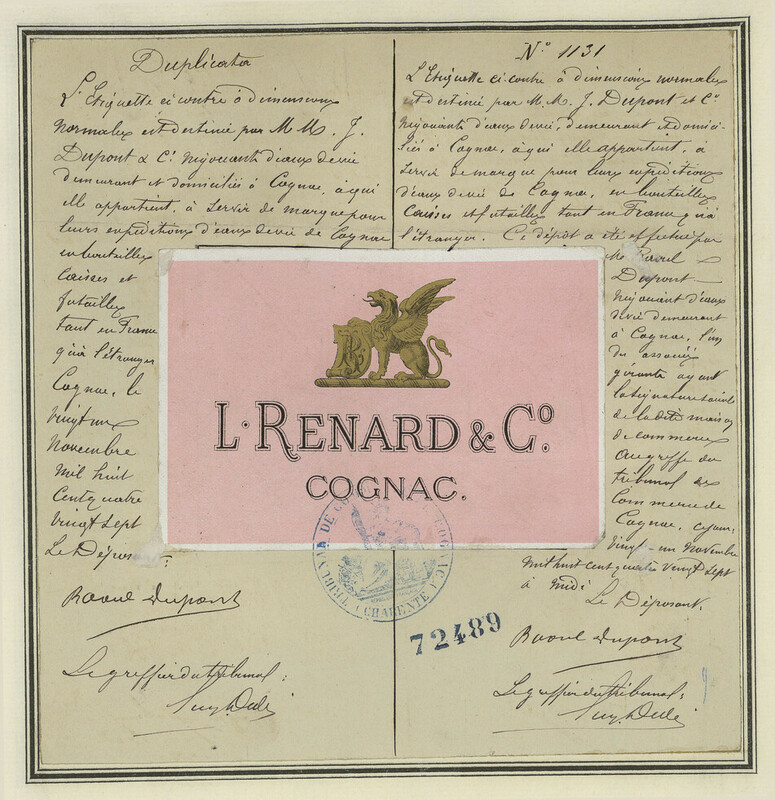 Duplicata
L'Etiquette ci contre à dimensions
normales est destinée par M.M. J.
Dupont & Cie négociants d'eaux de vie
demeurant et domiciliés à Cognac, à qui
elle appartient, à servir de marque pour
leurs expéditions d'eaux de vie de Cognac
en bouteilles
caisses et
futailles
tant en France
qu'à l'étranger
Cognac, le
vingt un
Novembre
mil huit
cent quatre
vingt sept
Le Dépos
Raoul Dupont
Le greffier du tribunal:
No 1131
L'Etiquette ci contre à dimensions normales
est destinée par M.M. J. Dupont et Cie
négociants d'eaux de vie, demeurant et domici-
liés à Cognac, à qui elle appartient, à
servir de marque pour leurs expéditions
d'eaux de vie de Cognac, en bouteilles
caisses et futailles tant en France qu'à
l'étranger. Ce dépôt a été effectué par
M. Raoul
Dupont
négociant d'eaux
de vie demeurant
à Cognac, l'un
des associés
gérants ayant
la signature sociale
de la dite maison
de commerce
au greffe du
tribunal de
Commerce de
Cognac, ce jour,
vingt-un Novembre
mil huit cent quatre vingt sept
à midi
Le Déposant,
Raoul Dupont
Le greffier du tribunal:
L. RENARD & Co.
COGNAC.
TRIBUNAL DE COGNAC (CHARENTE)
72489